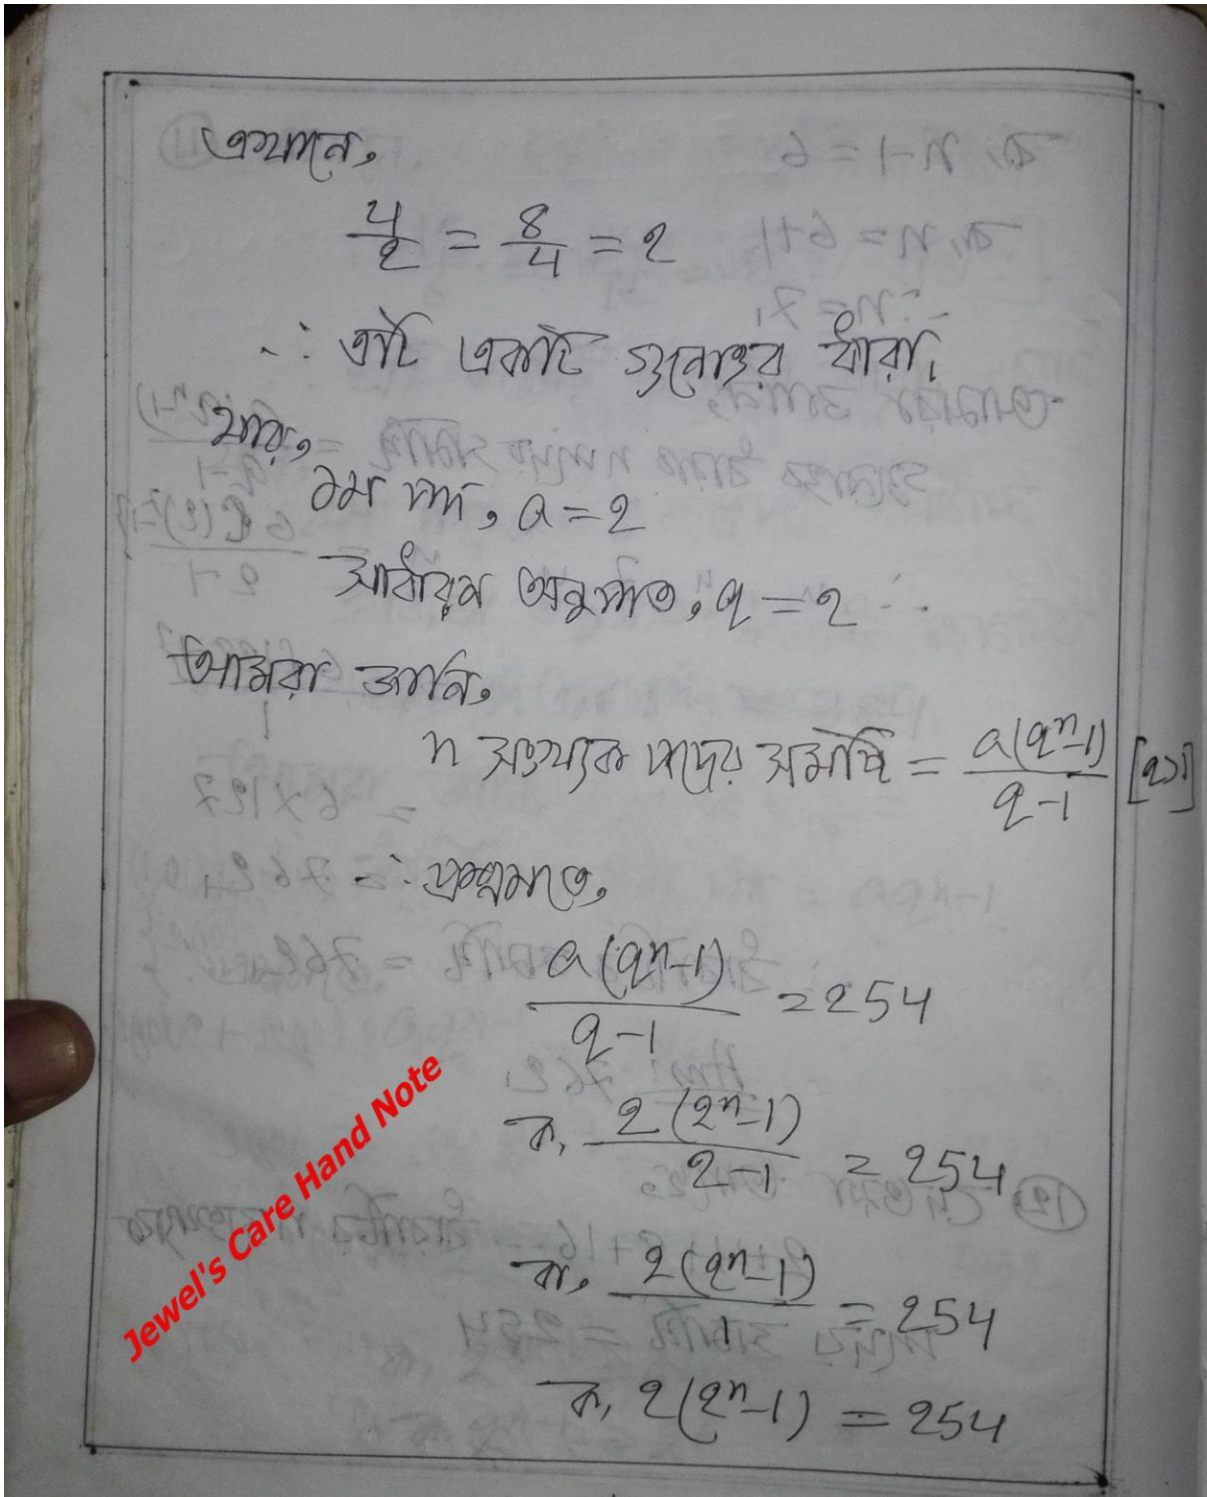 এখানে,
4/2 = 8/4 = 2
∴ এটি একটি গুনোত্তর ধারা।
যার,
১ম পদ, a = 2
সাধারন অনুপাত, q = 2
আমরা জানি,
n সংখ্যক পদের সমষ্টি = a(qⁿ-1)/q-1 [q>1]
∴ প্রশ্নমতে,
a(qⁿ-1)/q-1 = 254
বা, 2(2ⁿ-1)/2-1 = 254
বা, 2(2ⁿ-1)/1 = 254
বা, 2(2ⁿ-1) = 254
Jewel's Care Hand Note